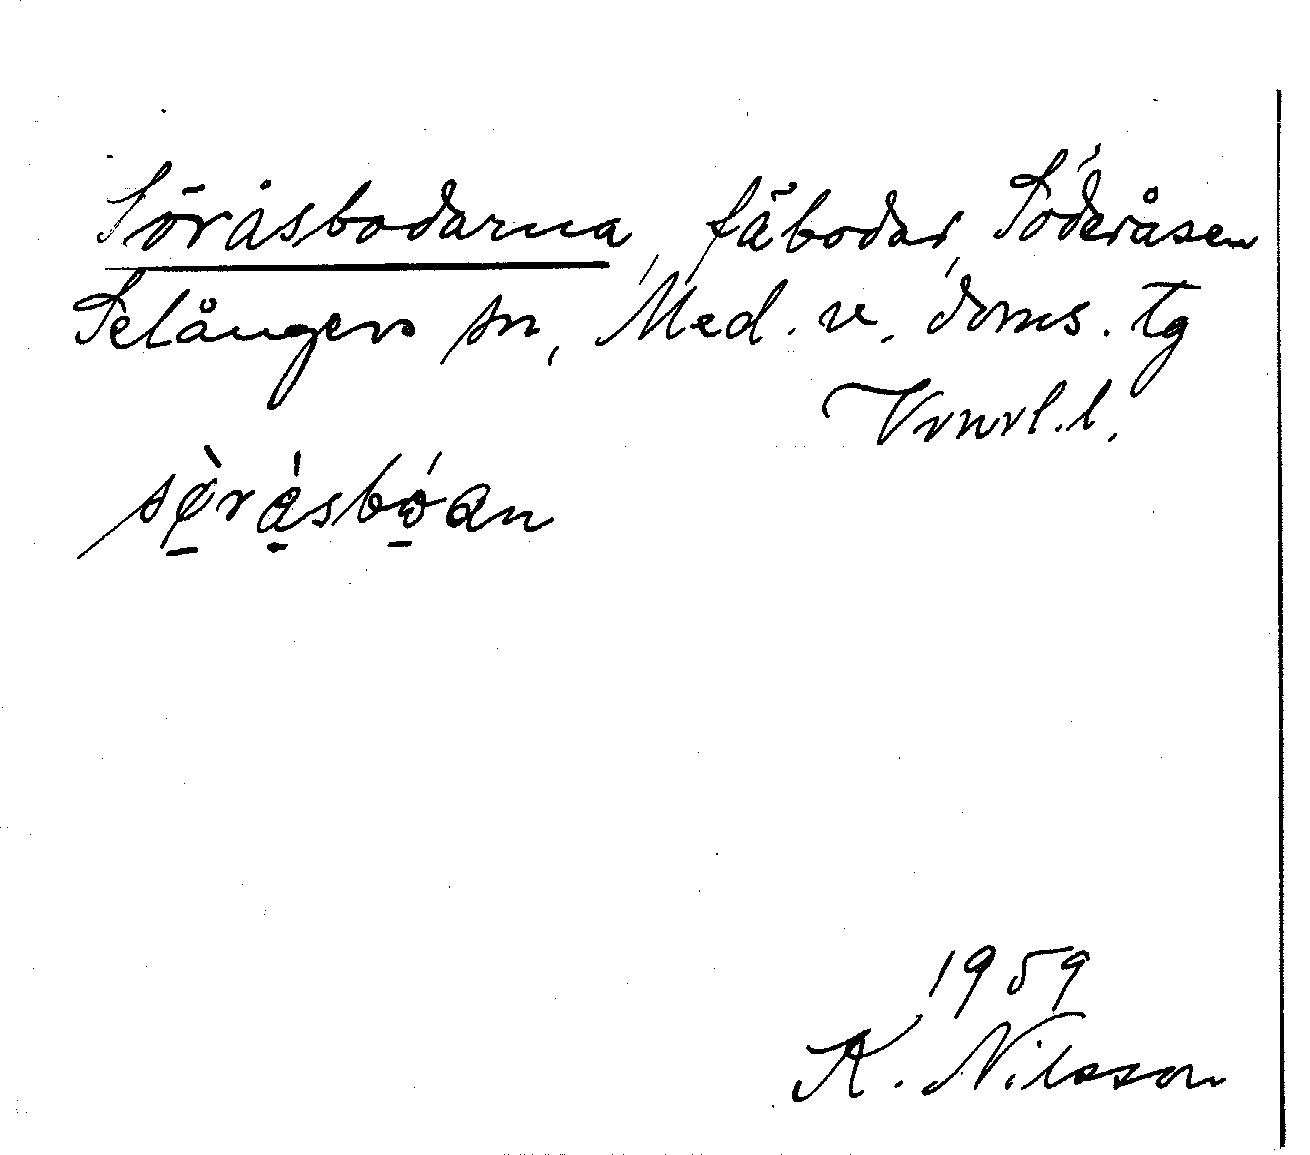 Söråsbodarna, fäbodar, Söderåsen
Selångers sn, Med. v. doms. tg
Vrnrl.l.
sø̀rásbóan
1959
K. Nilsson